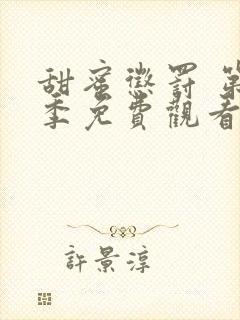 甜蜜懲罰 第
季免費觀看
許景淳